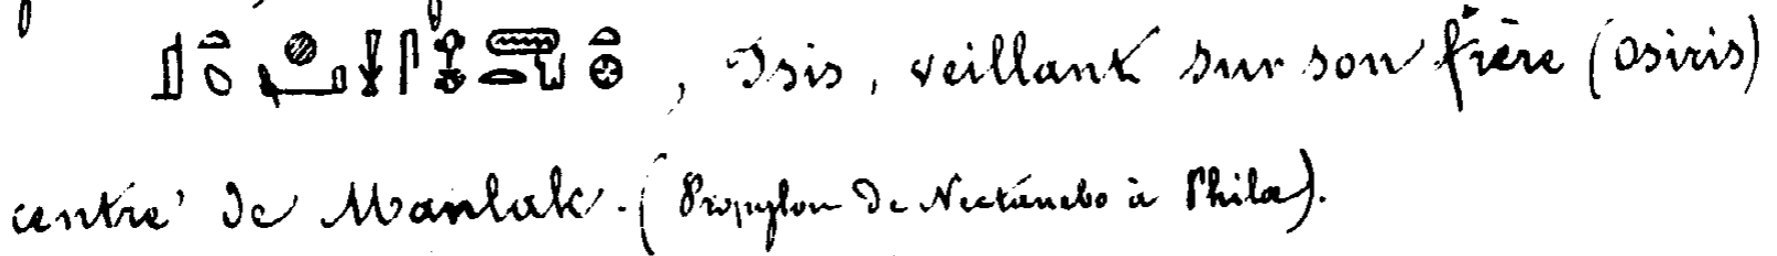 , Isis, veillant sur son frère (Osiris)
centre' de Manlak. (Propylon de Nectanebo à Philæ).